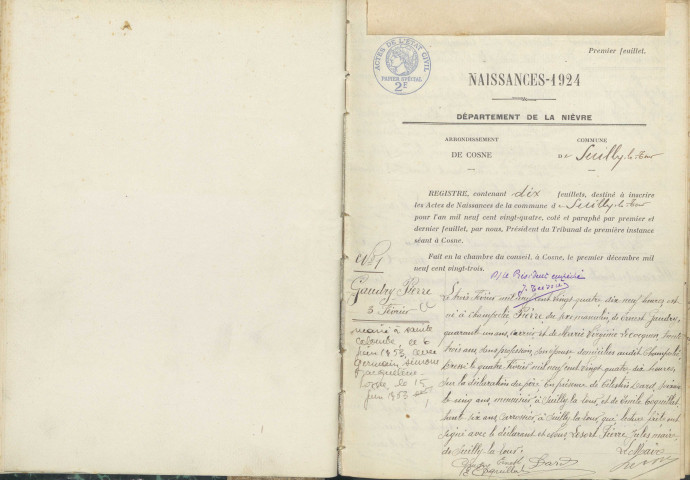 Premier feuillet.
ACTES DE L'ETAT CIVIL
PAPIER SPÉCIAL
2E
NAISSANCES-1924
DÉPARTEMENT DE LA NIÈVRE
ARRONDISSEMENT
DE COSNE
COMMUNE
DE Suilly-la-Tour
REGISTRE, contenant dix feuillets, destiné à inscrire
les Actes de Naissances de la commune d e Suilly-la-Tour
pour l'an mil neuf cent vingt-quatre, coté et paraphé par premier et
dernier feuillet, par nous, Président du Tribunal de première instance
séant à Cosne.
Fait en la chambre du conseil, à Cosne, le premier décembre mil
neuf cent vingt-trois.
P/le Président empêché
N° 1
Gaudry Pierre
3 Février
marié à sainte
colombe, le 6
juin 1953, avec
Germain, simone
Jacqueline
le 15
juin 1953
Le trois Février mil neuf cent vingt quatre, dix neuf heures est
né à Champcelée Pierre, du sexe masculin, de Ernest Gaudry,
quarante ans, et de Marie Virginie
trois ans, sans profession, son épouse domiciliés audit Champcelée
Dressé le quatre Février mil neuf cent vingt quatre, dix heures,
sur la déclaration du père. En présence de Célestin Dard,
cinq ans, menuisier, à Suilly la tour, et de Emile Coquillat
six ans, carrossier, à Suilly la tour, qui lecture faite ont
signé avec le déclarant et nous, Pierre, Jules maire,
de Suilly-la-Tour.
Le Maire
Gaudry
E Coquillat
Dard